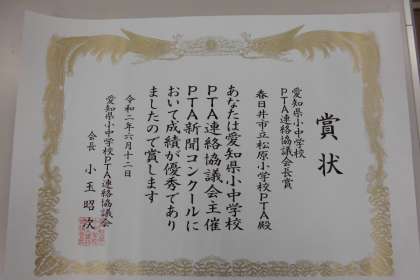 賞状
愛知県小中学校
PTA連絡協議会長賞
春日井市立松原小学校PTA殿
あなたは愛知県小中学校
PTA連絡協議会主催
PTA新聞コンクールに
おいて成績が優秀であり
ましたので賞します
令和二年六月十二日
愛知県小中学校PTA連絡協議会
会長 小玉昭次